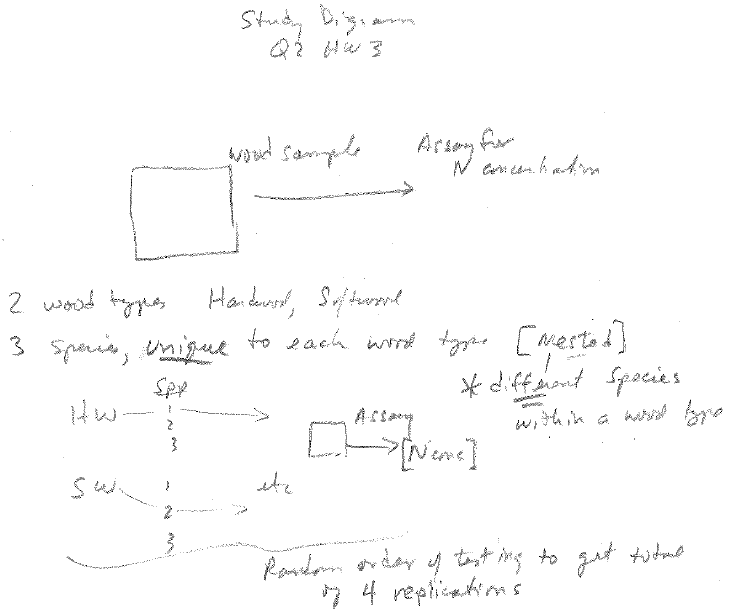 Study Diagram
Q2 HW 3
wood sample
Assay for
N concentration
2 wood types Hardwood, Softwood
3 species, unique to each wood type [Nested]
* different species
within a wood type
Spp
HW 1
2
3
Assay
[N conc]
SW 1
2
3
etc
Random order of testing to get total
of 4 replications